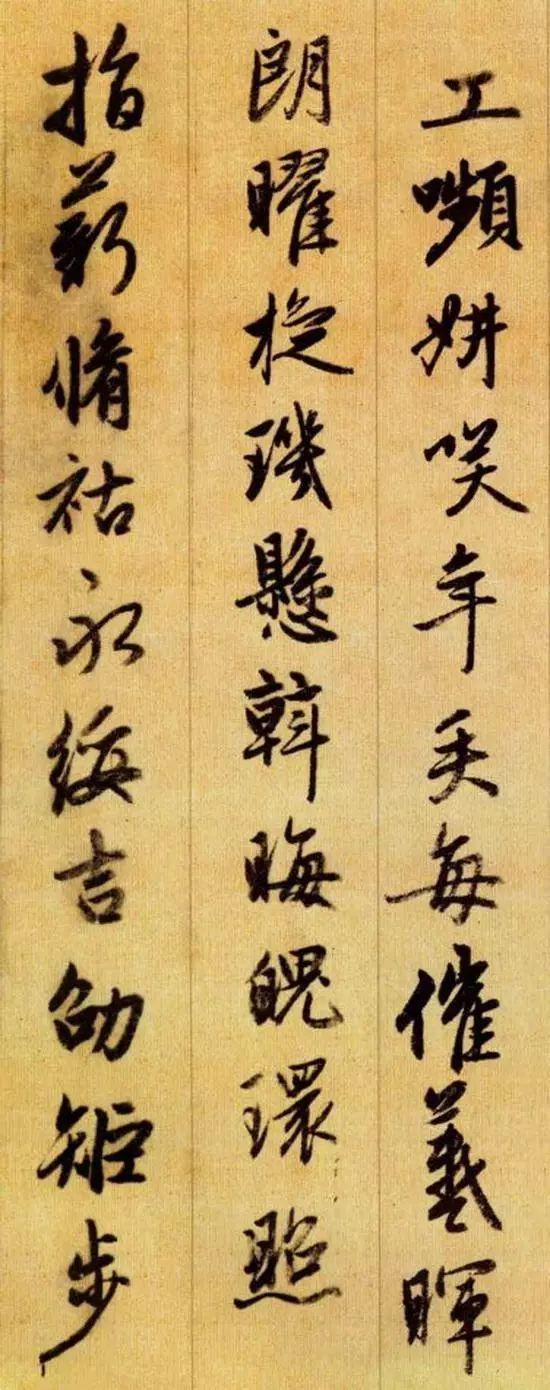 工嚬妍笑年矢每催羲暉
朗曜琁璣懸斡晦魄環照
指薪脩祜永綏吉劭矩步